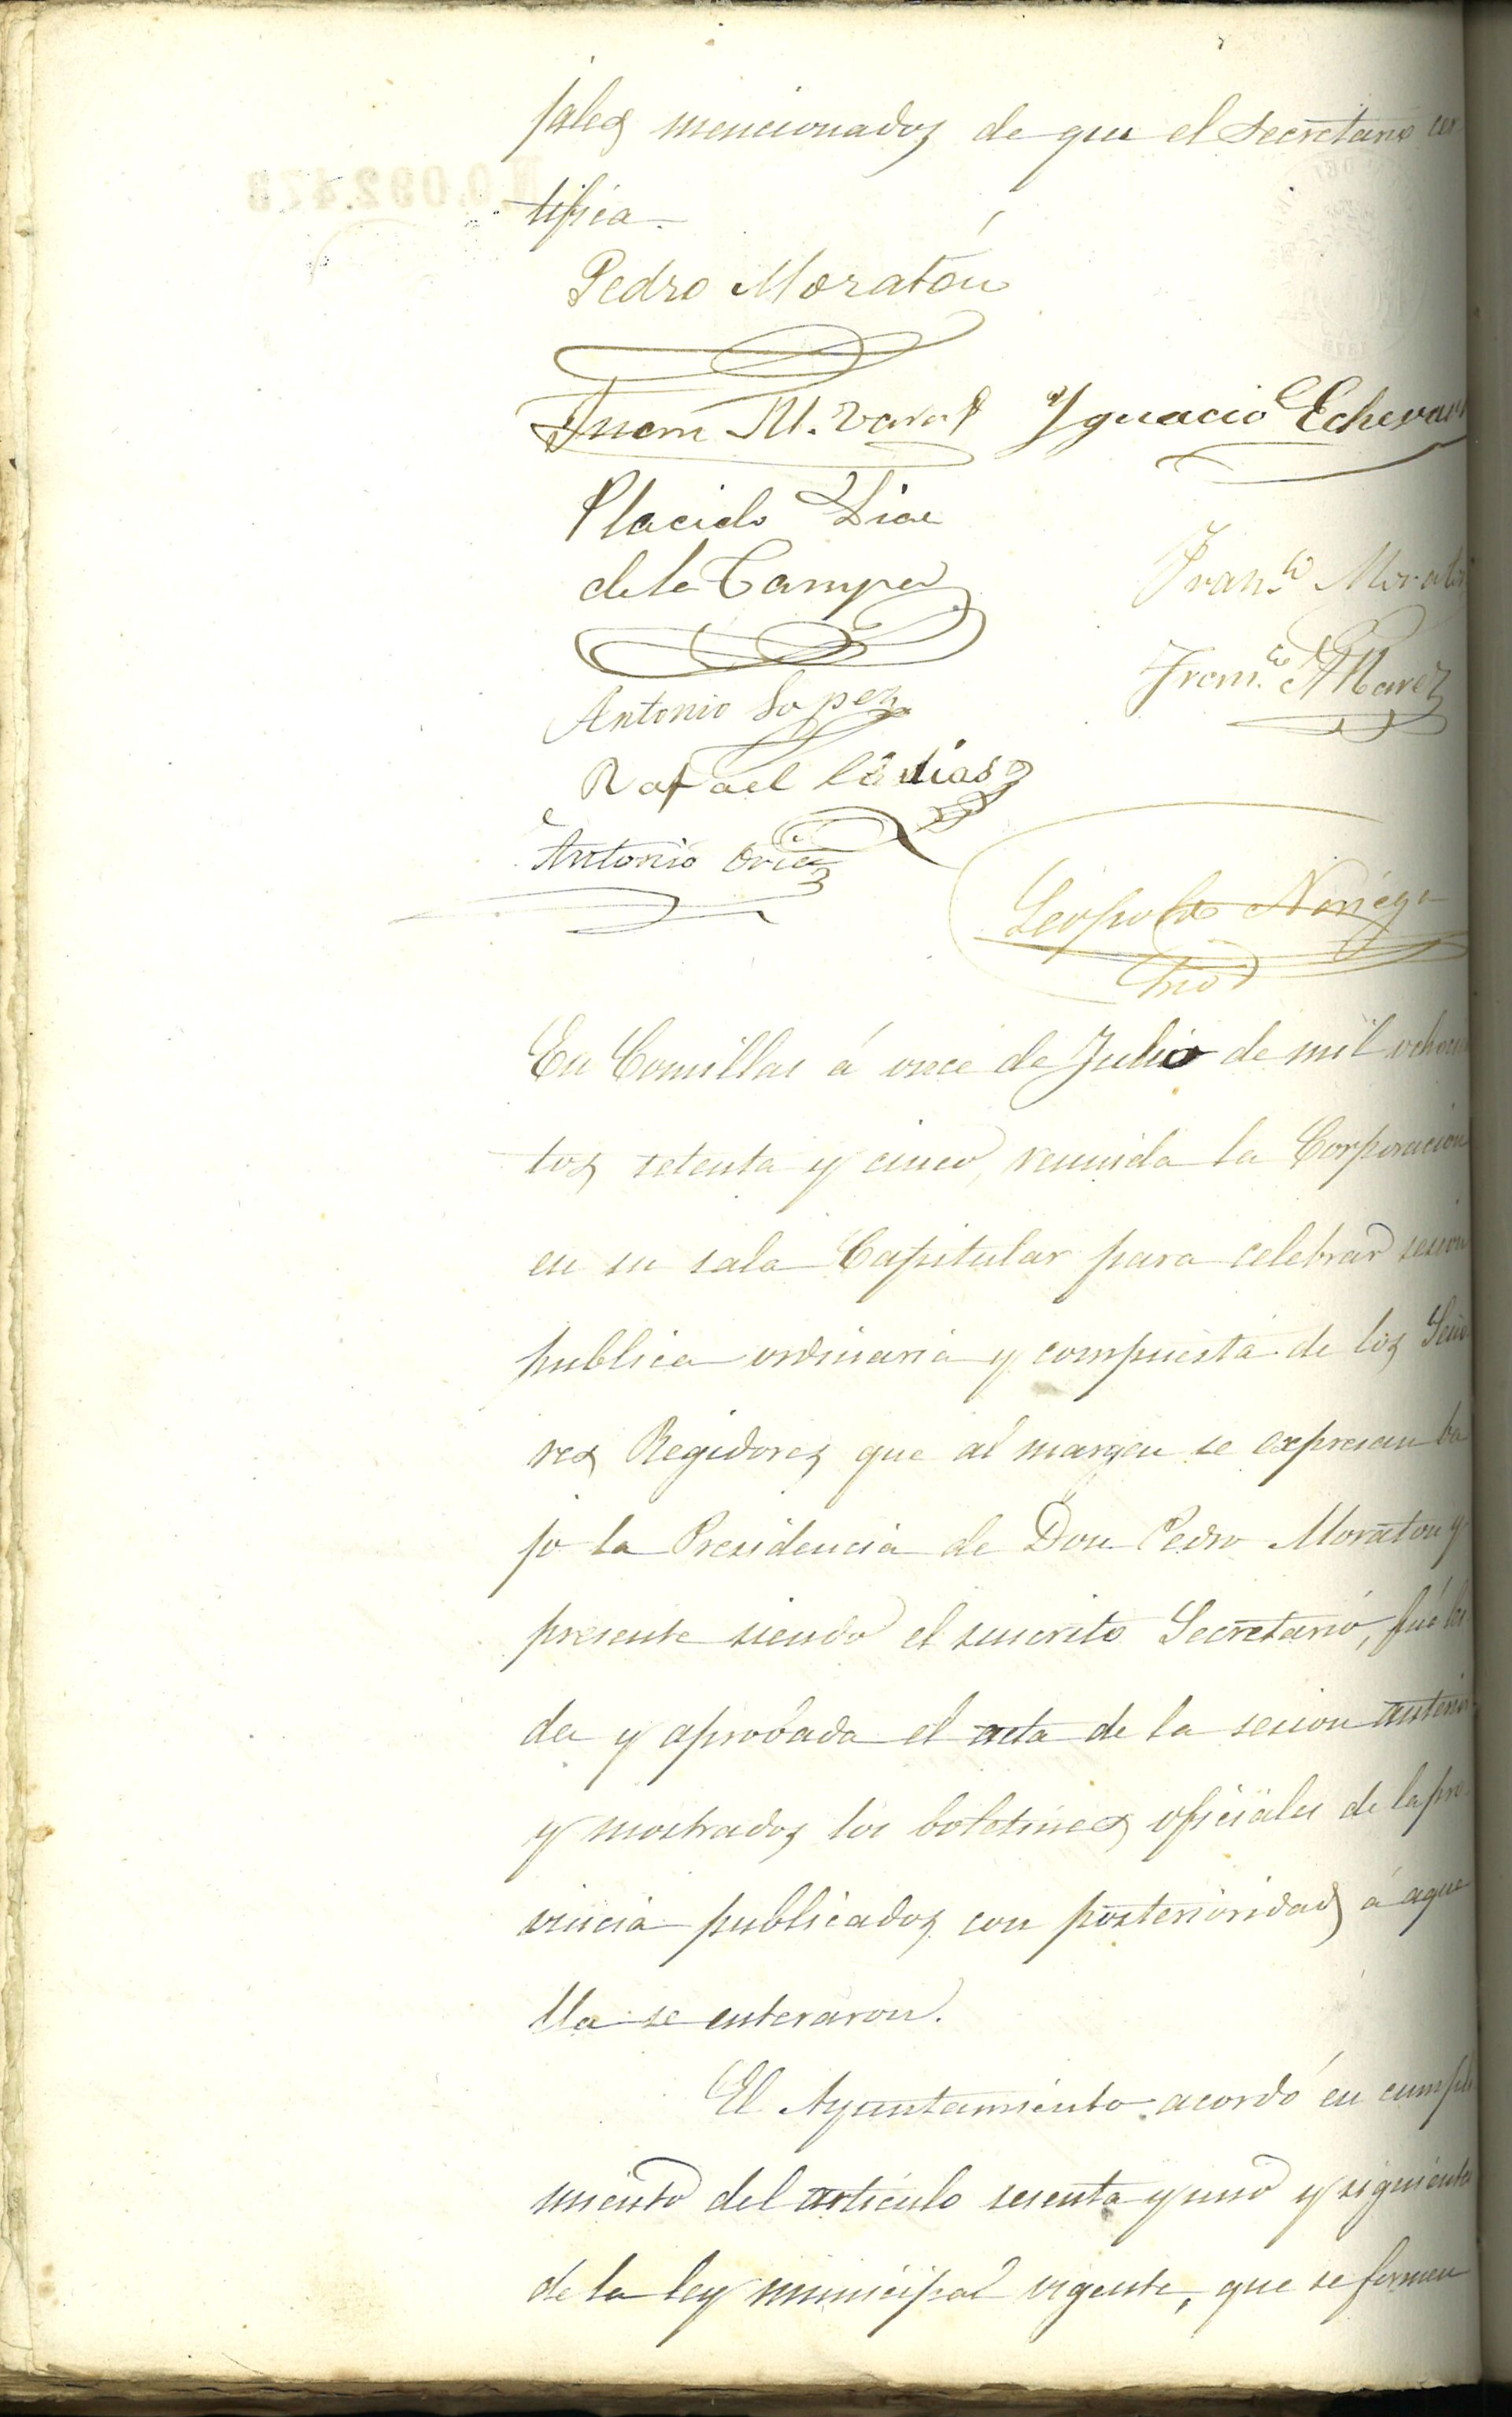 jales mencionados de que el Secretario cer
tifica.
Pedro Moratón
Juan M. Ygnacio Echevar
Placido Diaz
de la Campa
Fran.co Morató
Fran.co Alvarez
Antonio Lopez
Rafael
Antonio
Leopoldo Noriega
Srio
En Comillas á once de Julio de mil ochocien
tos setenta y cinco, reunida la Corporacion
en su sala Capitular para celebrar sesion
publica ordinaria y compuesta de los Seño
res Regidores que al margen se expresan ba
jo la Presidencia de Don Pedro Moraton y
presente siendo el suscrito Secretario, fué lei
da y aprobada el acta de la sesion anterior
y mostrados los boletines oficiales de la pro
vincia publicados con posterioridad á aque
lla se enteraron.
El Ayuntamiento acordó en cumpli
miento del articulo sesenta y uno y siguientes
de la ley municipal vigente, que se formen